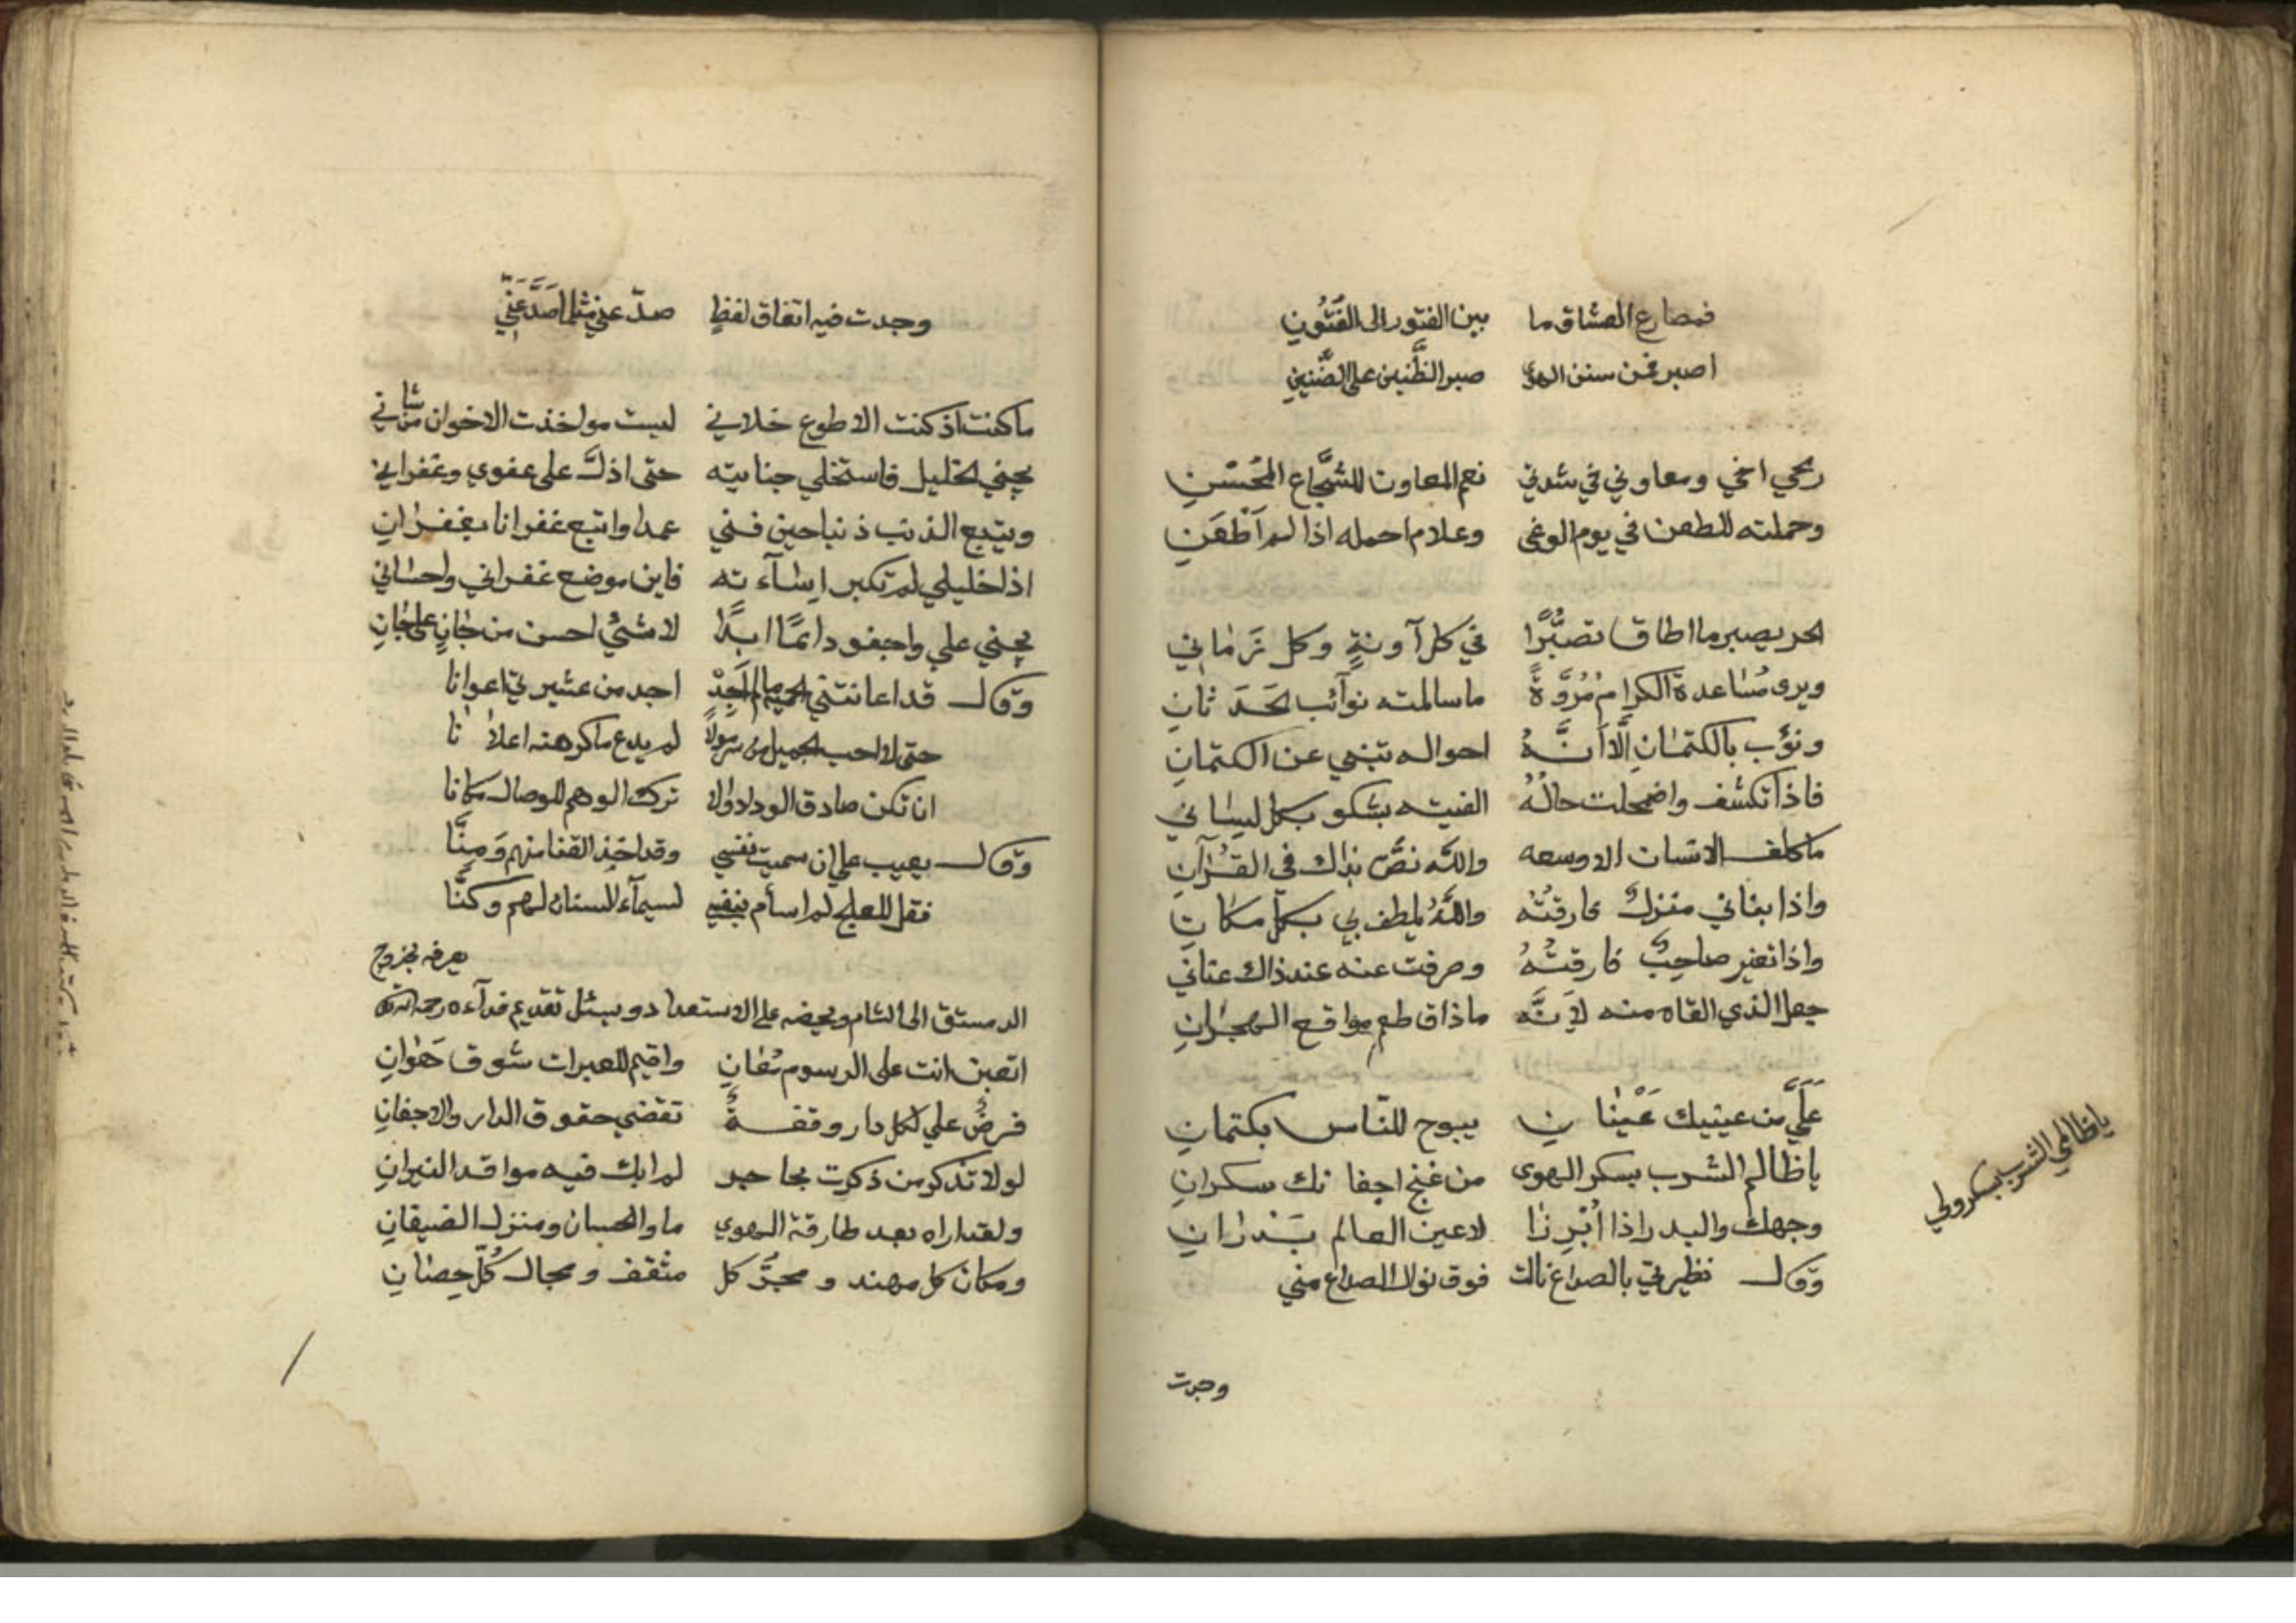 فمصارع العشاق ما بين الفتور الى الفُتُونِ
اصبر فمن سنن الهوى صبر الظَّنين على الضَّنينِ
رمحي اخي ومعاوني في شدتي نعم المعاون للشجَّاع المُحْسْنِ
وحملته للطعن في يوم الوغى وعلام احمله اذا لم اَطْعَنِ
الحر يصبر ما اطاق تصبُّرًا في كل آونةٍ وكل زَمانِي
ويرى مُساعدةَ الكرامِ مُرُوَّةً ما سالمته نوآئب الحَدَثانِ
ونؤب بالكتمانِ اِلَّا اَنَّهُ احواله تنبي عن الكتمانِ
فاذا تكشف واضمحلت حالُهُ الفيته يشكو بكل لِسانِي
ما كلف الانسان الا وسعه والله نصَّ بذاك في القُرْآنِ
واذا بناني منزلٌ فارقتُه واللهُ يلطف بي بكلِّ مكانِ
واذا تغير صاحِبٌ فارقتُهُ وصرفت عنه عند ذاك عنانِي
جعل الذي القاه منه لِاَنَّه ما ذاق طعم مواقع الهجرانِ
عَلَيَّ من عينيك عَيْنانِ يبوح للنّاس بكتمانِ
يا ظالم الشرب بسكر الهوى من غنج اجفانك سكرانِ
يا ظالمي الشرب بسكر ولي
وجهك والبدر اذا اُبْرِزا لاعين العالم بَدْرانِ
وقال نظيرتي بالصداغ نالت فوق نولا الصداغ مني
وجدت
وجدت فيه اتفاق لفظٍ صدّ عني مثلما صَدَّ عَنِّي
ما كنت اذ كنت الا طوع خلاني ليست مواخذت الاخوان من شاني
يجني الخليل فاستحلي جنايته حتى اذلَّ على عفوي وغفراني
ويتبع الذنب ذنبا حين فني عمدا واتبع غفرانا بغفرانِ
اذا خليلي لم تكبر اِسآءته فاين موضع غفراني واحسانِي
يجني علي واحفو دائمًا ابدًا لا شيئٌ احسن من جانٍ على جَانِ
وقال قد اعانتني الحمية لما لم اَجِدْ اجد من عشيرتي اعوانا
حتى لا احب الجميل من سرّ مولًا لم يدع ما كرهته اعلانا
ان تكن صادق الوداد ولا ترك الوهم للوصال مكانا
وقال يعيب علي ان سميت نفسي وقد اخذ القنا منهم وَمِنَّا
فقل للعلج لم اسأم بنفسي لسيمآء للسنان لهم وكنَّا
يعرفه بخروج
الدمستق الى الشام ويحضه على الاستعداد ويسئل تقديم فدآءه رحمه الله
اتعبن انت على الرسوم مُغانِ واقيم للعبرات سُوق هَوانِ
فرضٌ علي لكل دار وقفةٌ تقضي حقوق الدار والاجفانِ
لولا تذكر من ذكرت بحاجر لم ابك فيه مواقد النيرانِ
ولقد اراه بعد طارقة الهوى ماوا الحسان ومنزل الضيفانِ
ومكان كل مهند ومجرَّ كل مثقف ومجال كُلّ حِصانِ